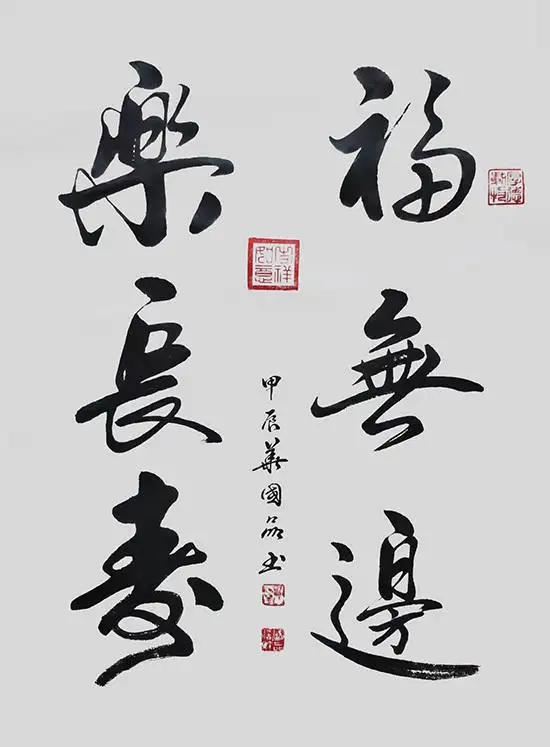 福無邊
樂長壽
甲辰華國品書
吉祥如意